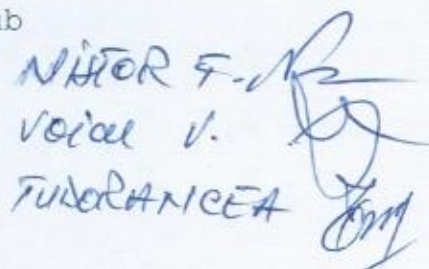 ub
NISTOR F.
Voicu V.
TUDORANCEA